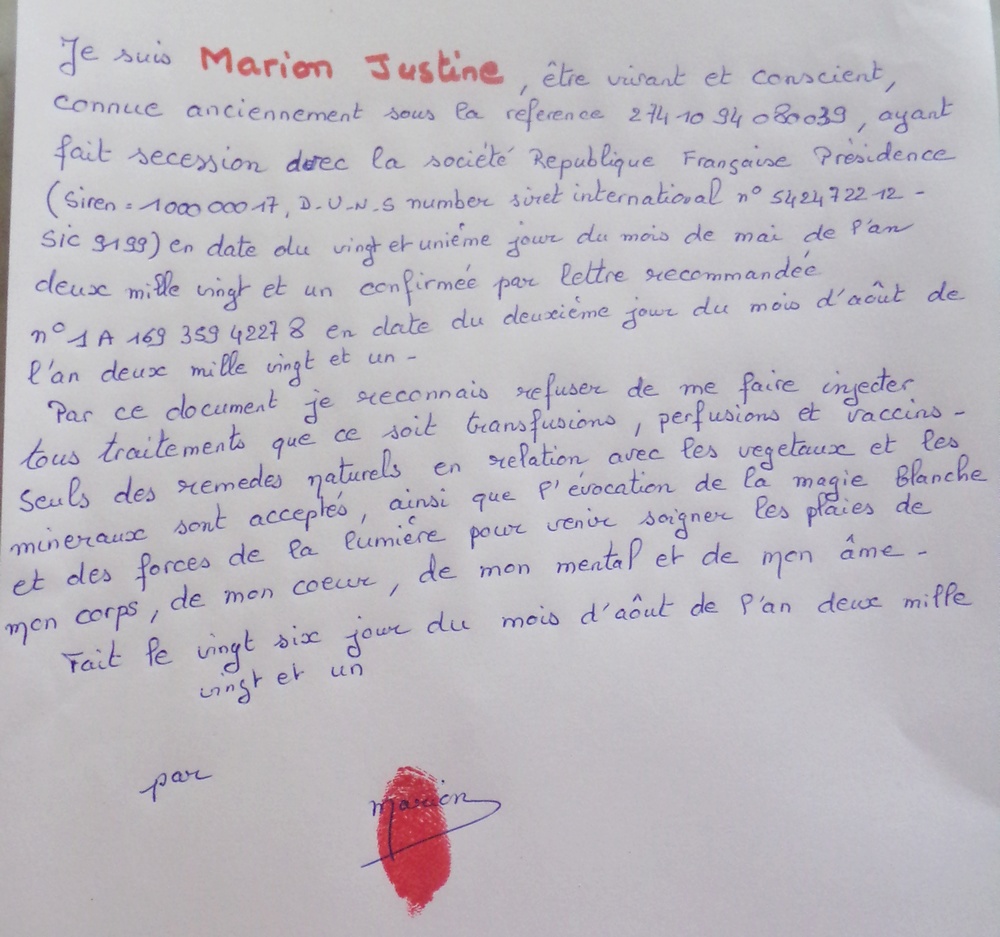 Je suis Marion Justine, être vivant et conscient,
connue anciennement sous la reference 274 10 94 080039, ayant
fait secession avec la société Republique Française Présidence
(Siren = 1000 000 17, D-U-N-S number siret international n° 542472212 -
Sic 9199) en date du vingt et uniéme jour du mois de mai de l'an
deux mille vingt et un confirmée par lettre recommandée
n° 1 A 169 359 4227 8 en date du deuxiéme jour du mois d'août de
l'an deux mille vingt et un -
Par ce document je reconnais refuser de me faire injecter
tous traitements que ce soit transfusions, perfusions et vaccins -
Seuls des remedes naturels en relation avec les vegetaux et les
mineraux sont acceptés, ainsi que l'évocation de la magie Blanche
et des forces de la lumiére pour venir soigner les plaies de
mon corps, de mon coeur, de mon mental et de mon âme -
Fait le vingt six jour du mois d'août de l'an deux mille
vingt et un
par
Marion